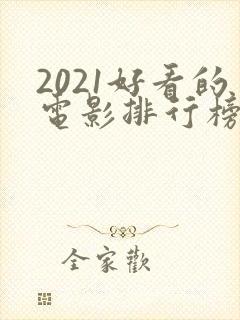 2021好看的
电影排行榜
全家歡